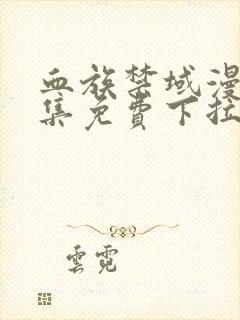 血族禁域漫
集免费下拉
雲霓